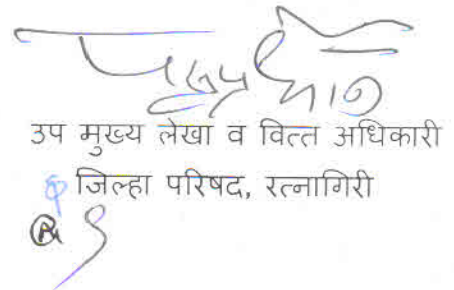 उप मुख्य लेखा व वित्त अधिकारी
जिल्हा परिषद, रत्नागिरी